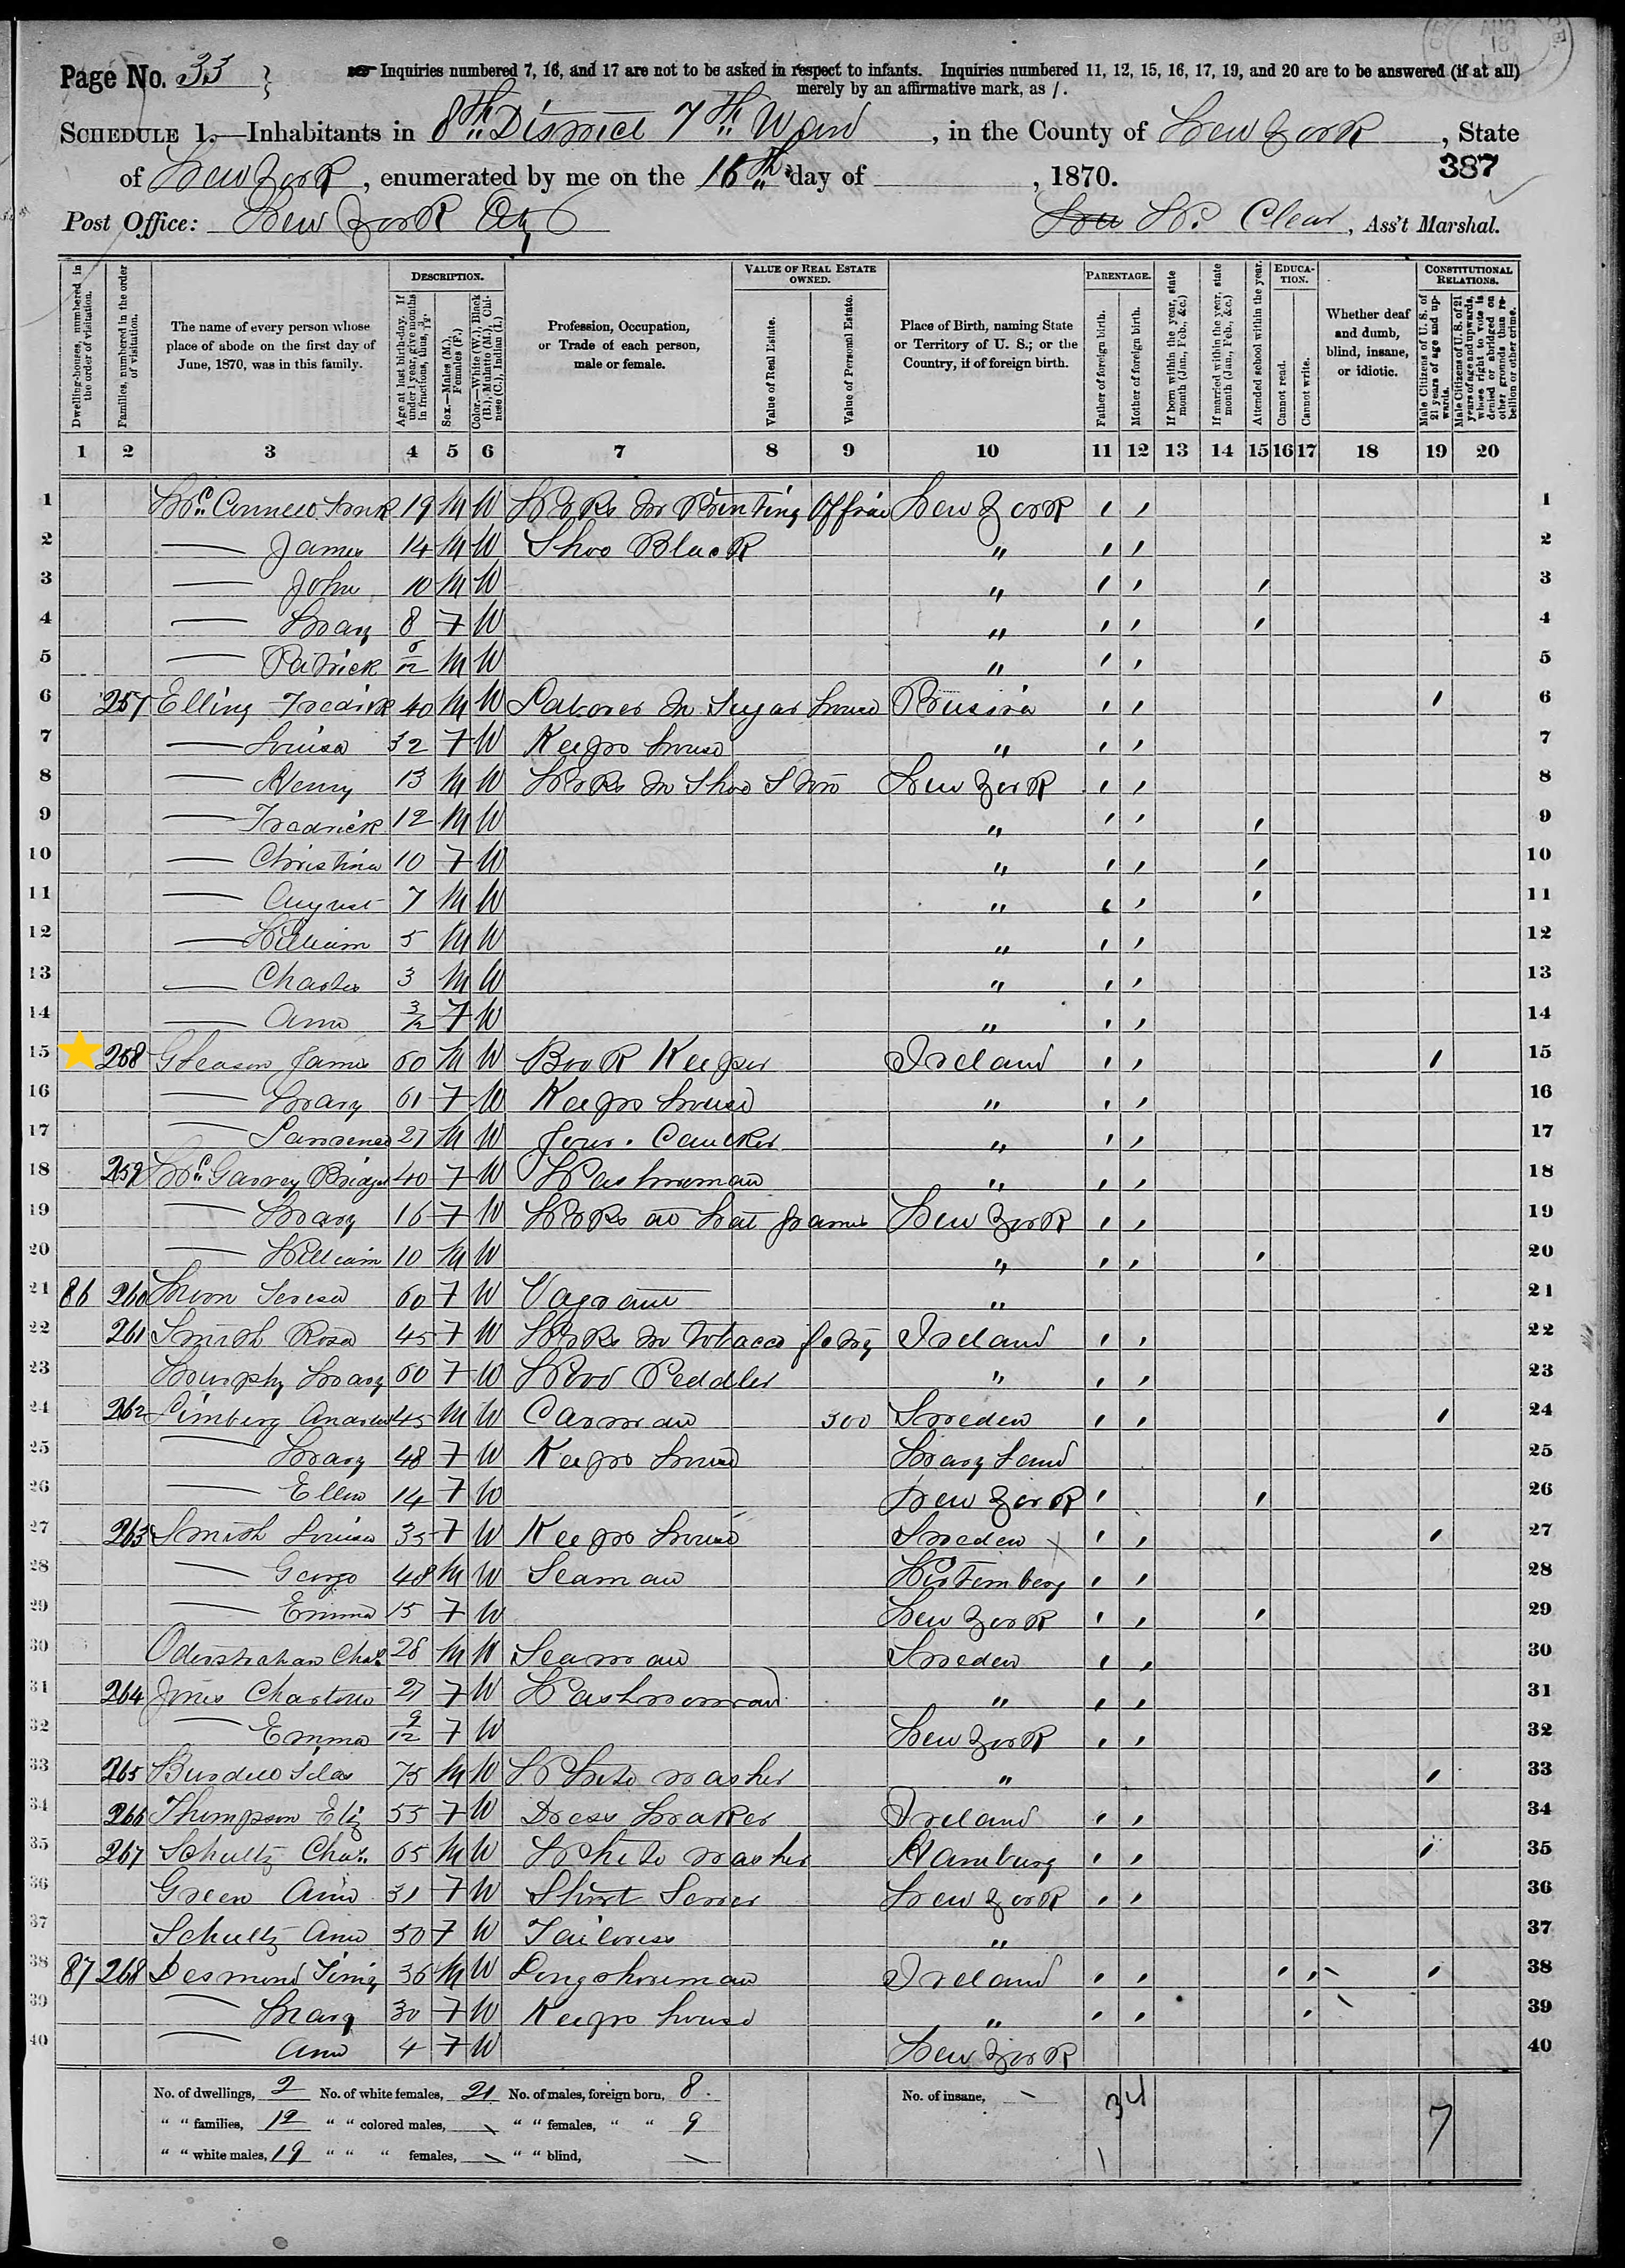 Page No. 33
Inquiries numbered 7, 16, and 17 are not to be asked in respect to infants. Inquiries numbered 11, 12, 15, 16, 17, 19, and 20 are to be answered (if at all)
merely by an affirmative mark, as /.
SCHEDULE 1.—Inhabitants in 8th District 7th Ward, in the County of New York, State
of New York, enumerated by me on the 16th day of , 1870.
387
Post Office: New York City
Wm. Clear, Ass't Marshal.
Dwelling-houses, numbered in the order of visitation.
Families, numbered in the order of visitation.
The name of every person whose place of abode on the first day of June, 1870, was in this family.
DESCRIPTION.
Age at last birth-day. If under 1 year, give months in fractions, thus, 3/12.
Sex.—Males (M.), Females (F.)
Color.—White (W.), Black (B.), Mulatto (M.), Chinese (C.), Indian (I.)
Profession, Occupation, or Trade of each person, male or female.
VALUE OF REAL ESTATE OWNED.
Value of Real Estate.
Value of Personal Estate.
Place of Birth, naming State or Territory of U. S.; or the Country, if of foreign birth.
PARENTAGE.
Father of foreign birth.
Mother of foreign birth.
If born within the year, state month (Jan., Feb., &c.)
If married within the year, state month (Jan., Feb., &c.)
Attended school within the year.
EDUCATION.
Cannot read.
Cannot write.
Whether deaf and dumb, blind, insane, or idiotic.
CONSTITUTIONAL RELATIONS.
Male Citizens of U. S. of 21 years of age and upwards.
Male Citizens of U. S. of 21 years of age and upwards, whose right to vote is denied or abridged on other grounds than rebellion or other crime.
1 2 3 4 5 6 7 8 9 10 11 12 13 14 15 16 17 18 19 20
1 McConnell 19 M W Works in Printing Office New York / / 1
2 — James 14 M W Shoe Black " / / 2
3 — John 10 M W " / / / 3
4 — Mary 8 F W " / / / 4
5 — Patrick M W " / / 5
6 257 Elling Fredrick 40 M W Laborer in Sugar house Prussia / / / 6
7 — Louisa 32 F W Keeps house " / / 7
8 — Henry 13 M W Works in Shoe Store New York / / 8
9 — Fredrick 12 M W " / / / 9
10 — Christina 10 F W " / / / 10
11 — August 7 M W " / / / 11
12 — William 5 M W " / / 12
13 — Charles 3 M W " / / 13
14 — Ann 3/12 F W " / / 14
15 258 Gleason James 60 M W Book Keeper Ireland / / / 15
16 — Mary 61 F W Keeps house " / / 16
17 — Lawrence 27 M W Jour. Caulker " / / 17
18 259 McGarvey Bridget 40 F W Washwoman " / / 18
19 — Mary 16 F W Works at hat frames New York / / 19
20 — William 10 M W " / / / 20
21 86 260 Teresa 60 F W Vagrant " 21
22 261 Smith Rosa 45 F W Works in tobacco factory Ireland / / 22
23 Murphy Mary 60 F W Wood Peddler " / / 23
24 262 Limberg Andrew 45 M W Carman 300 Sweden / / / 24
25 — Mary 48 F W Keeps house Mary Land 25
26 — Ellen 14 F W New York / / 26
27 263 Smith Louisa 35 F W Keeps house Sweden / / / 27
28 — George 48 M W Seaman Wirtemberg / / 28
29 — Emma 15 F W New York / / / 29
30 Chas. 28 M W Seaman Sweden / / 30
31 264 Jones Charlotte 27 F W Washwoman " / / 31
32 — Emma 9/12 F W New York / / 32
33 265 Burdell Silas 75 M W White washer " / 33
34 266 Thompson Eliz 55 F W Dress Maker Ireland / / 34
35 267 Schultz Chas. 65 M W White washer Hamburg / / / 35
36 Green Ann 31 F W Shirt Sewer New York / / 36
37 Schultz Ann 50 F W Tailoress " 37
38 87 268 Desmond Timy 36 M W Longshoreman Ireland / / / / / 38
39 — Mary 30 F W Keeps house " / / / 39
40 — Ann 4 F W New York 40
No. of dwellings, 2 No. of white females, 21 No. of males, foreign born, 8. No. of insane, — 34
" " families, 12 " " colored males, — " " females, " " 9 7
" " white males, 19 " " " females, — " " blind, —